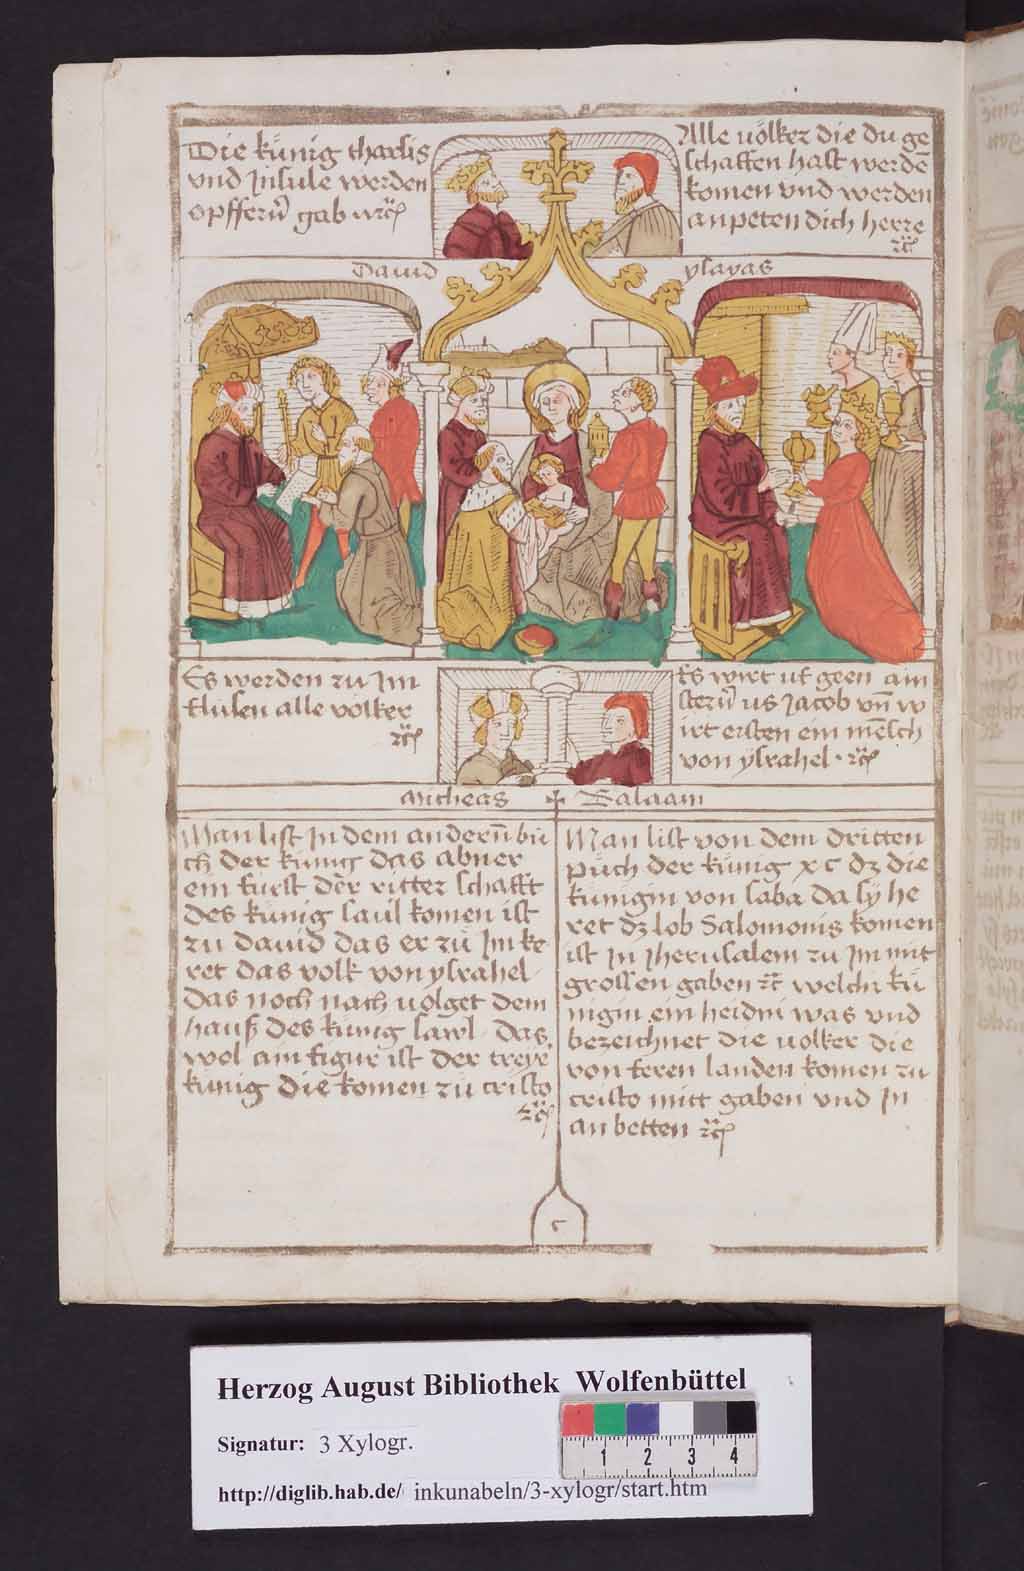 Die künig tharsis
vnd Insule werden
opfferñ gab ⁊c̃
Alle uölker die du ge
schaffen hast werdē
komen vnd werden
anpeten dich herre
⁊c̃
Dauid
ysayas
Es werden zu Im
flüsen alle völker
⁊c̃
Es wirt uf geen ain
sterñ us Jacob vñ w
irt ersten ein mēsch
von ysrahel · ⁊c̃
Micheas
Balaam
Man list In dem anderñ bu
ch der künig das abner
ein fürst der ritter schafft
des künig saul komen ist
zu dauid das er zu Im ke
ret das volk von ysrahel
das noch nach uolget dem
hauß des künig sawl das
wol ain figur ist der treye
künig die komen zu cristo
⁊c̃
Man list von dem dritten
püch der künig x c dz die
künigin von saba da sy he
ret dz lob Salomonis komen
ist In Jherusalem zu Im mit
grossen gaben ⁊c̃ welchi kü
nigin ein heidni was vnd
bezeichnet die uolker die
von feren landen komen zu
cristo mitt gaben vnd In
an betten ⁊c̃
Herzog August Bibliothek Wolfenbüttel
Signatur: 3 Xylogr.
1 2 3 4
http://diglib.hab.de/ inkunabeln/3-xylogr/start.htm